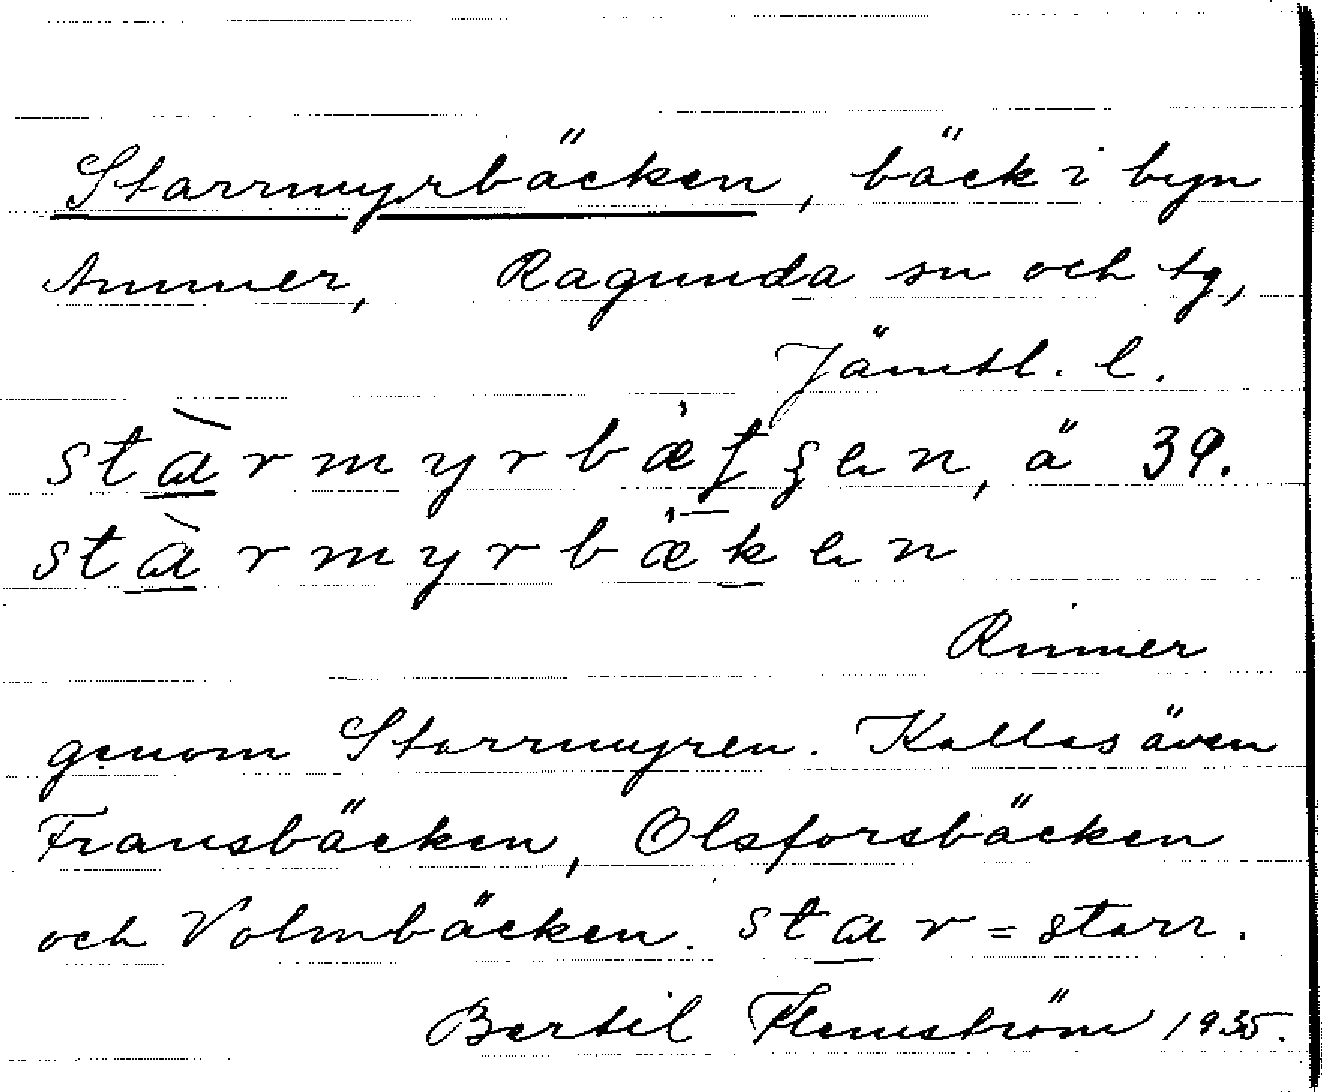 Starrmyrbäcken, bäck i byn
Ammer, Ragunda sn och tg,
Jämtl. l.
stàrmyrbæ̀ʈʂen, ä 39.
stàrmyrbæ̀ken
Rinner
genom Starrmyren. Kallas även
Fransbäcken, Olsforsbäcken
och Volmbäcken. star = starr.
Bertil Flemström 1935.